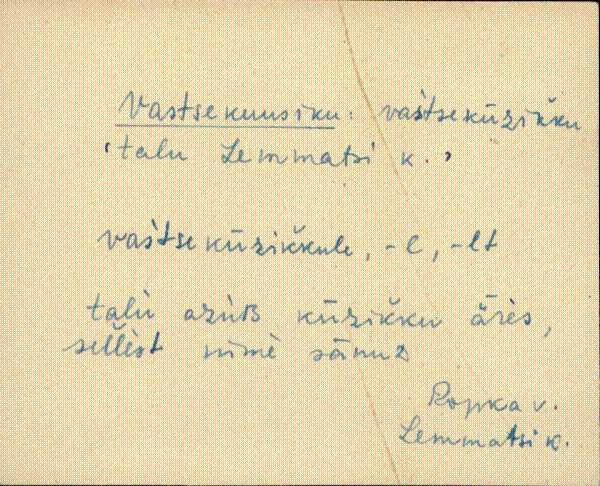 Vastsekuusiku: vaśtsekūzikku
'talu Lemmatsi k.'
vaśtsekūzikkule, -l, -lt
talù azùB kūzikku ǟrès,
sellèst nimè sānuz
Ropka v.
Lemmatsi k.